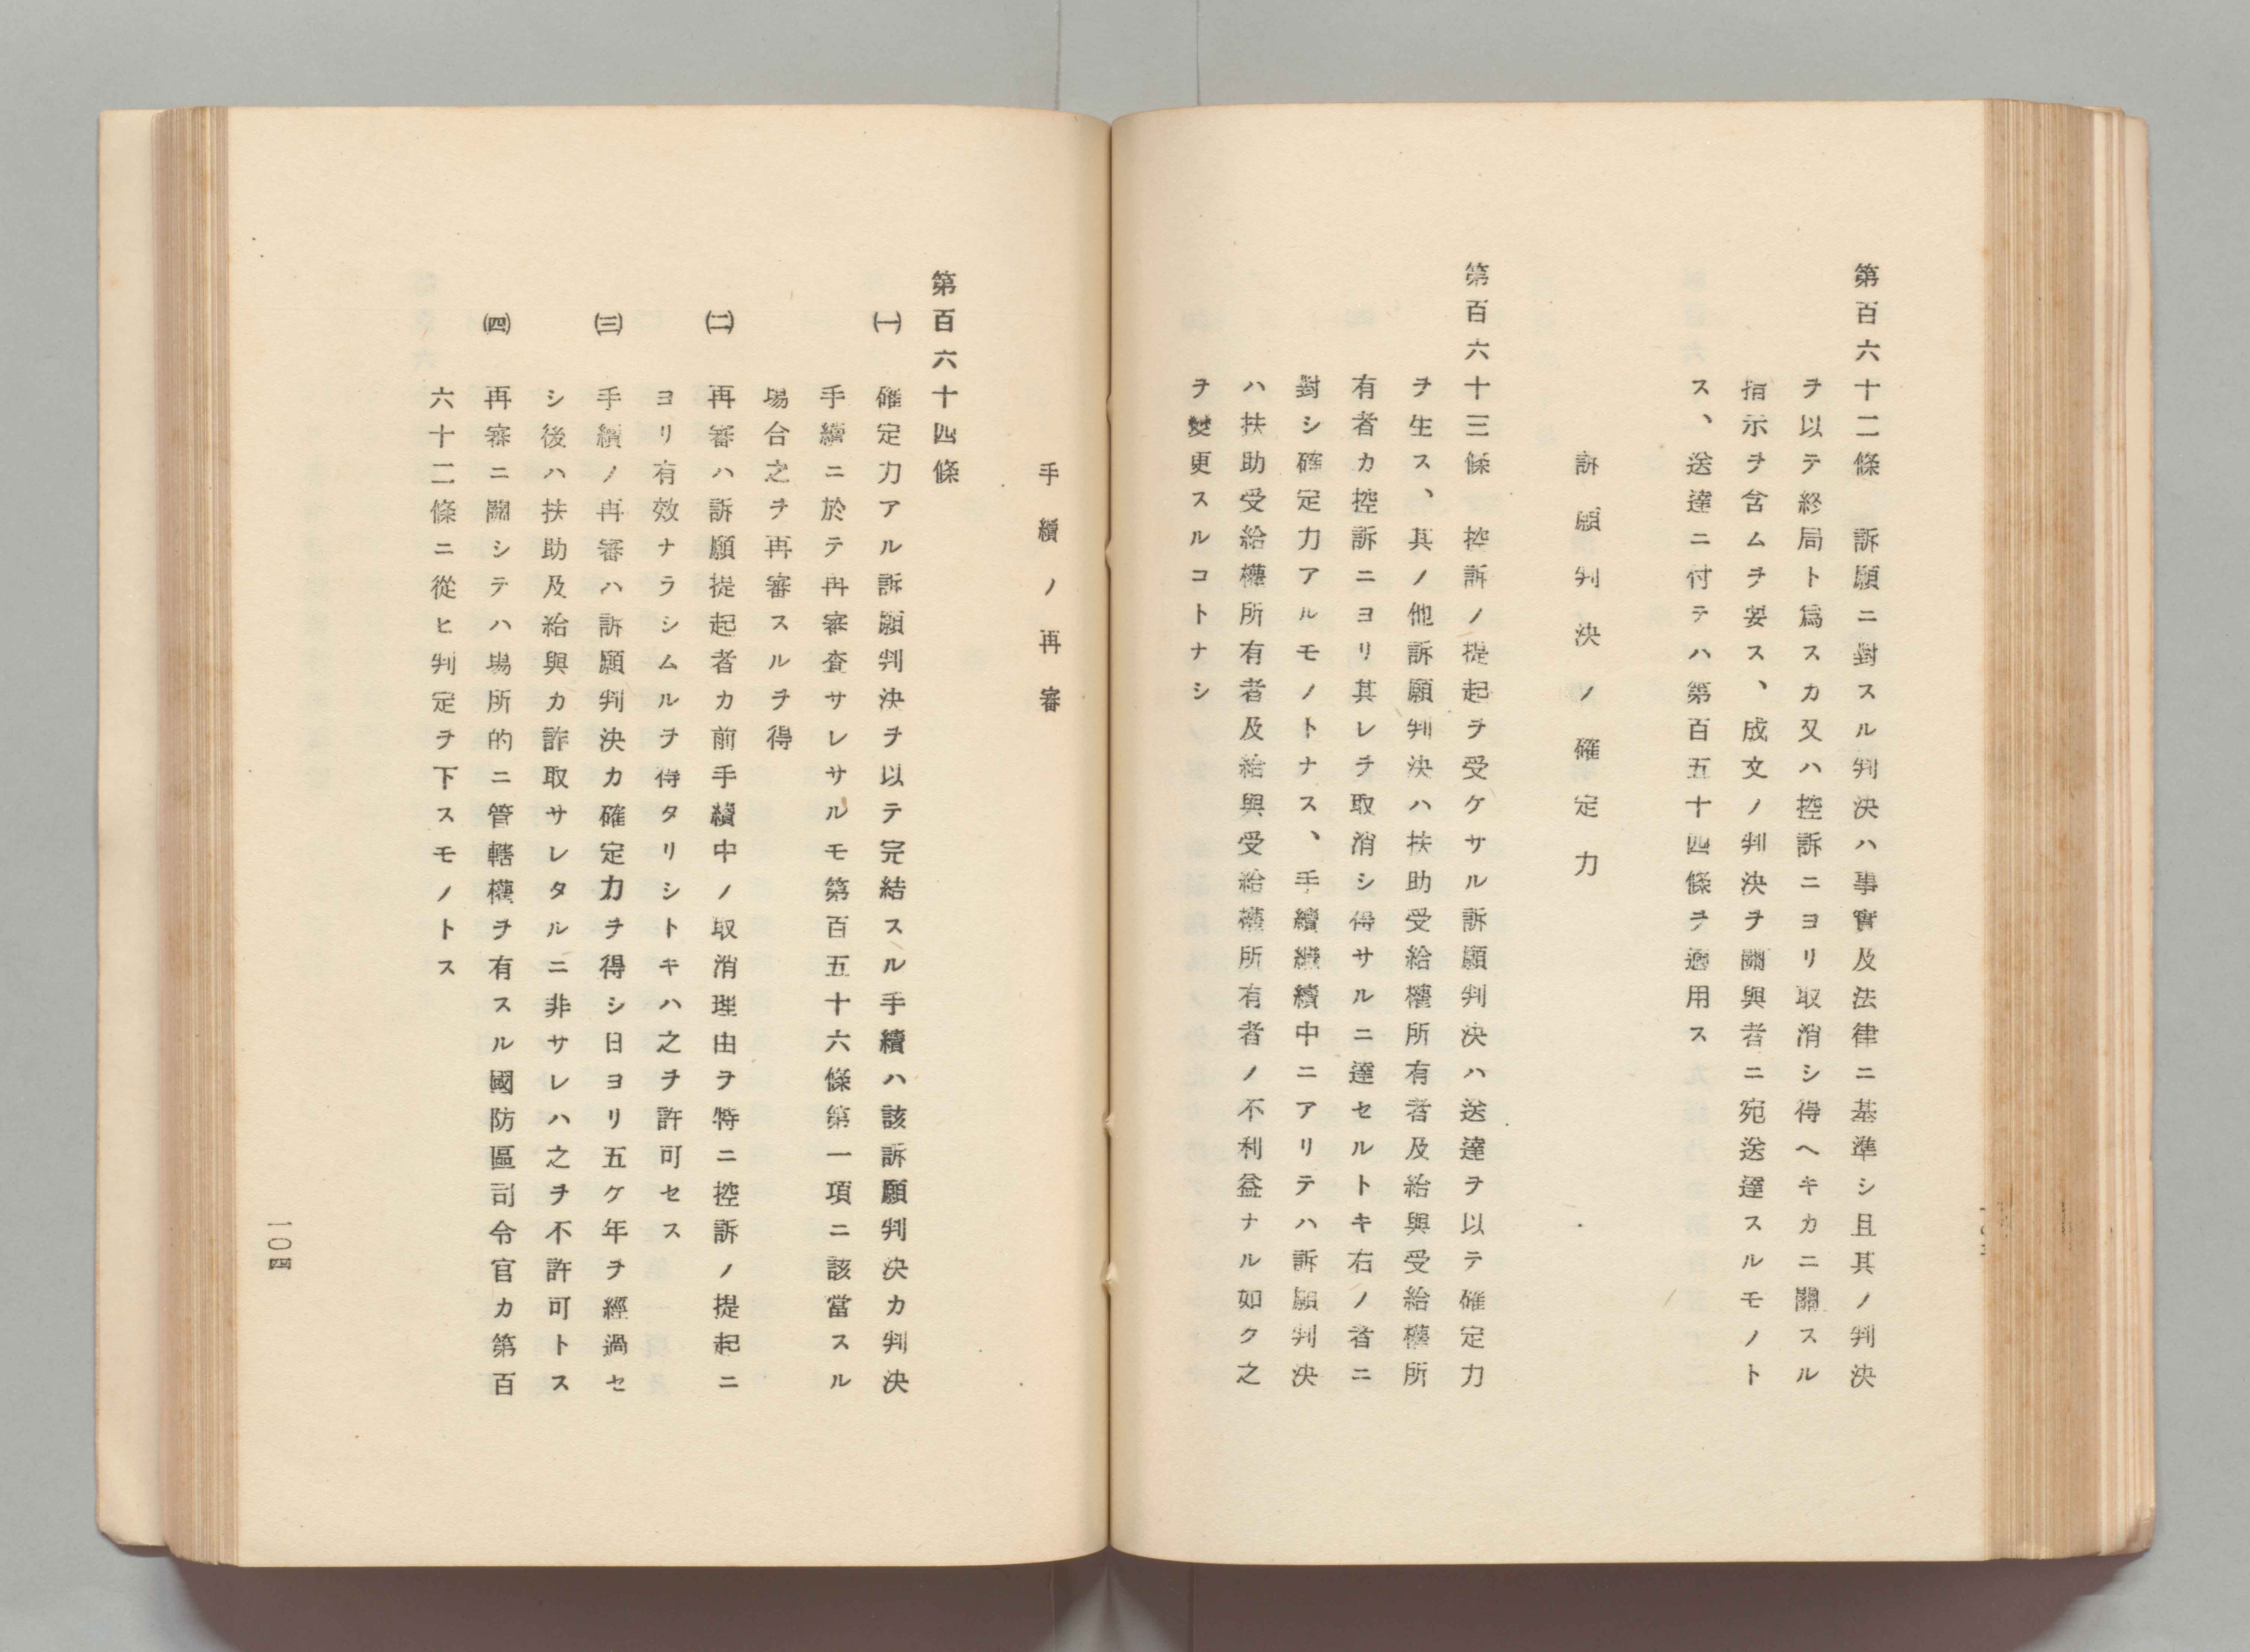 第百六十二條　訴願ニ對スル判決ハ事實及法律ニ基準シ且其ノ判決
ヲ以テ終局ト爲スカ又ハ控訴ニヨリ取消シ得ヘキカニ關スル
指示ヲ含ムヲ要ス、成文ノ判決ヲ關與者ニ宛送達スルモノト
ス、送達ニ付テハ第百五十四條ヲ適用ス
訴願判決ノ確定力
第百六十三條　控訴ノ提起ヲ受ケサル訴願判決ハ送達ヲ以テ確定力
ヲ生ス、其ノ他訴願判決ハ扶助受給權所有者及給與受給權所
有者カ控訴ニヨリ其レヲ取消シ得サルニ達セルトキ右ノ者ニ
對シ確定力アルモノトナス、手續繼續中ニアリテハ訴願判決
ハ扶助受給權所有者及給與受給權所有者ノ不利益ナル如ク之
ヲ變更スルコトナシ
手續ノ再審
第百六十四條
㈠　確定力アル訴願判決ヲ以テ完結スル手續ハ該訴願判決カ判決
手續ニ於テ再審査サレサルモ第百五十六條第一項ニ該當スル
場合之ヲ再審スルヲ得
㈡　再審ハ訴願提起者カ前手續中ノ取消理由ヲ特ニ控訴ノ提起ニ
ヨリ有效ナラシムルヲ得タリシトキハ之ヲ許可セス
㈢　手續ノ再審ハ訴願判決カ確定力ヲ得シ日ヨリ五ケ年ヲ經過セ
シ後ハ扶助及給與カ詐取サレタルニ非サレハ之ヲ不許可トス
㈣　再審ニ關シテハ場所的ニ管轄權ヲ有スル國防區司令官カ第百
六十二條ニ從ヒ判定ヲ下スモノトス
一〇四